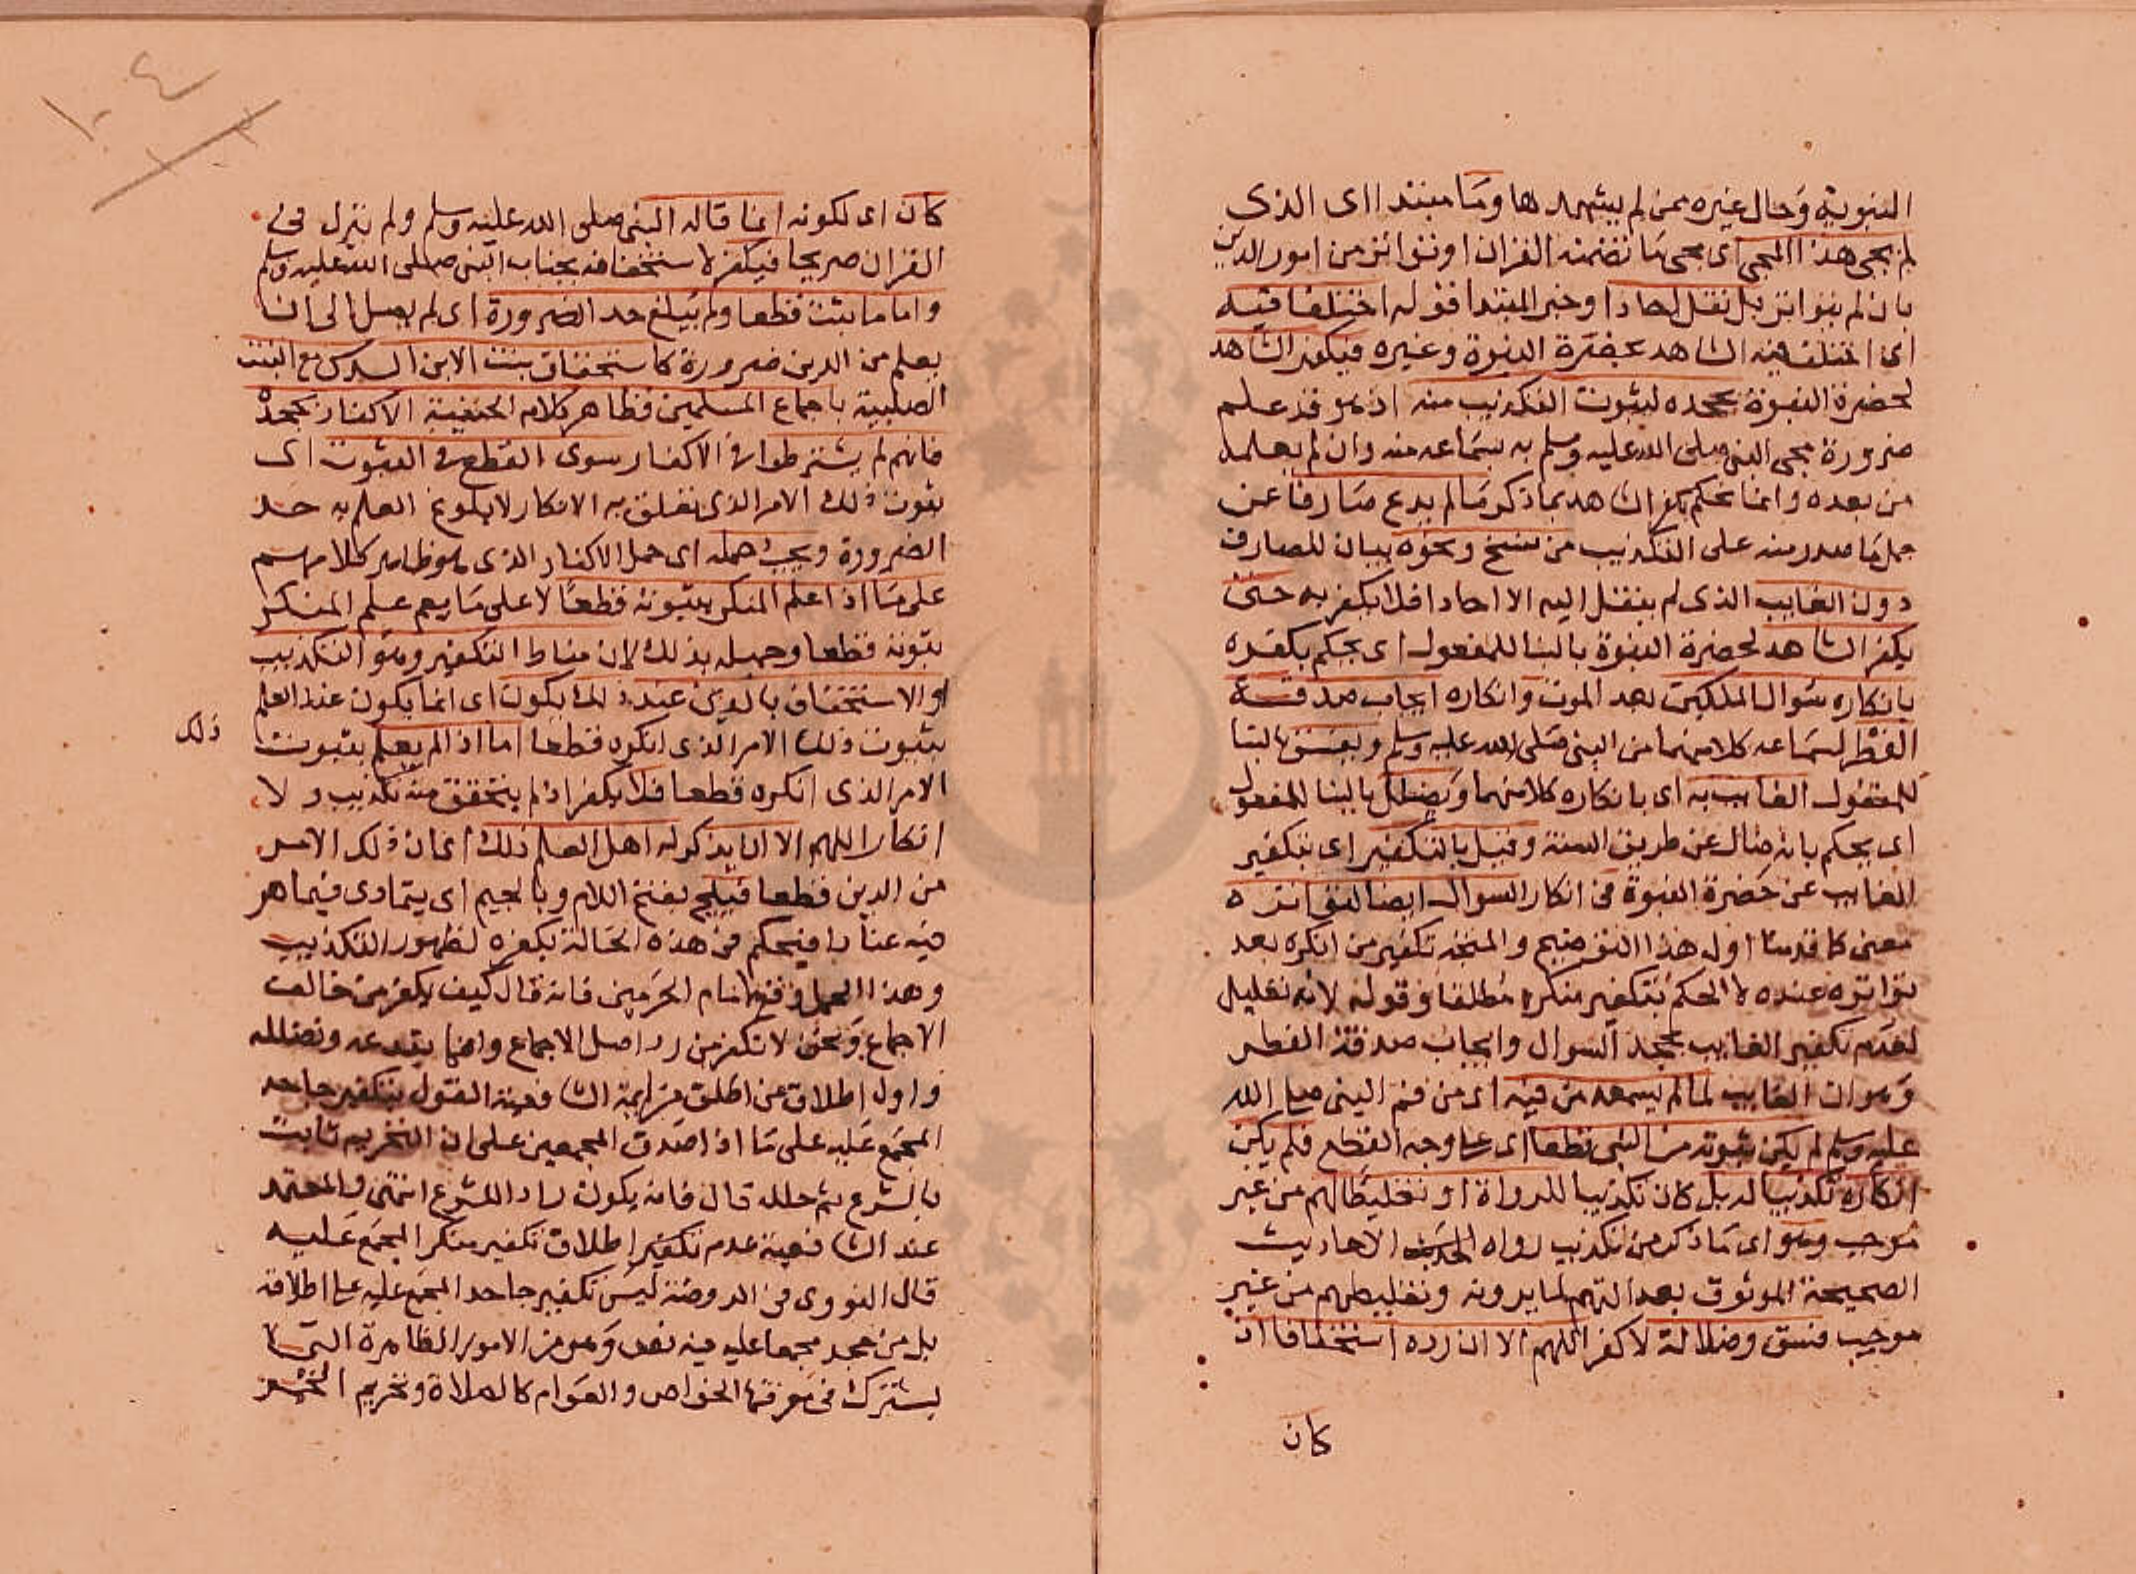 النبوية وحال غيره ممن لم يشهدها وما مبتدا اى الذى
لم يجى هذا المجى اى مجى ما تضمنه القران او تواتر من امور الدين
بان لم يتواتر بل نقل احادا وخبر المبتدا قوله اختلفا فيه
اى اختلف فيه الشاهد بحضرة النبوة وغيره فيكفر الشاهد
لحضرة النبوة بجحده لثبوت التكذيب منه اذ هو قد علم
ضرورة مجى النبى صلى الله عليه وسلم به بسماعه منه وان لم يعلمه
من بعده وانما يحكم بكفر الشاهد بما ذكر ما لم يدع صارفا عن
حمل ما صدر منه على التكذيب من نسخ ونحوه بيان للصارف
دون الغايب الذى لم ينقل اليه الا احادا فلا يكفر به حتى
يكفر الشاهد لحضرة النبوة بالبنا للمفعول اى يحكم بكفره
بانكاره سوال الملكين بعد الموت وانكاره ايجاب صدقة
الفطر لسماعه كلا منهما من النبى صلى الله عليه وسلم ويفسق بالبنا
للمفعول الغايب به اى بانكاره كلا منهما ويضلل بالبنا للمفعول
اى يحكم بانه ضال عن طريق السنة وقيل بالتكفير اى بتكفير
الغايب عن حضرة النبوة فى انكار السوال ايضا لتواتره
معنى كما قدمنا اول هذا التوضيح والمتجه تكفير من انكره بعد
تواتره عنده لا الحكم بتكفير منكره مطلقا وقوله لانه تعليل
لعدم تكفير الغايب بجحد السوال وايجاب صدقة الفطر
وهو ان الغايب لما لم يسمعه من فيه اى من فم النبى صلى الله
عليه وسلم لم يكن ثبوته من النبى قطعا اى على وجه القطع فلم يكن
انكاره تكذيبا له بل كان تكذيبا للرواة او تغليطا لهم من غير
موجب وهو اى ما ذكر من تكذيب رواه الاحاديث
الصحيحة الموثوق بعدالتهم لما يروونه وتغليطهم من غير
موجب فسق وضلالة لا كفر اللهم الا ان رده استخفافا اذ
كان
كان اى لكونه انما قاله النبى صلى الله عليه وسلم ولم ينزل فى
القران صريحا فيكفر لاستخفافه بجناب النبى صلى الله عليه وسلم
واما ما ثبت قطعا ولم يبلغ حد الضرورة اى لم يصل الى ان
يعلم من الدين ضرورة كاستحقاق بنت الابن السدس مع البنت
الصلبية باجماع المسلمين فظاهر كلام الحنفية الاكفار بجحده
فانهم لم يشترطوا فى الاكفار سوى القطع فى الثبوت اى
ثبوت ذلك الامر الذى تعلق به الانكار لا بلوغ العلم به حد
الضرورة ويجب حمله اى حمل الاكفار الذى هو ظاهر كلامهم
على ما اذا علم المنكر بثبوته قطعا لا على ما يعم علم المنكر
بثوته قطعا وجهله بذلك لان مناط التكفير وهو التكذيب
او الاستخفاف بالدين عند ذلك يكون اى انما يكون عند العلم
بثبوت ذلك الامر الذى انكره قطعا اما اذا لم يعلم بثبوت
ذلك
الامر الذى انكره قطعا فلا يكفر اذ لم يتحقق منه تكذيب ولا
انكار اللهم الا ان يذكر له اهل العلم ذلك اى ان ذلك الامر
من الدين قطعا فيلج بفتح اللام وبالجيم اى يتمادى فيما هو
فيه عنادا فيحكم فى هذه الحالة بكفره لظهور التكذيب
وهذا الحمل وقع لامام الحرمين فانه قال كيف يكفر من خالف
الاجماع ونحن لا نكفر من رد اصل الاجماع وانما يبتدعه ونضلله
واول اطلاق من اطلق من ايمة الشافعية القول بتكفير جاحد
المجمع عليه على ما اذا صدق المجمعين على ان التحريم ثابت
بالشرع ثم حلله قال فانه يكون رادا للشرع انتهى والمعتمد
عند الشافعية عدم تكفير اطلاق تكفير منكر المجمع عليه
قال النووى فى الروضة ليس تكفير جاحد المجمع عليه على اطلاقه
بل من جحد مجمعا عليه فيه نص وهو من الامور الظاهرة التى
يشترك فى معرفتها الخواص والعوام كالصلاة وتحريم الخمر